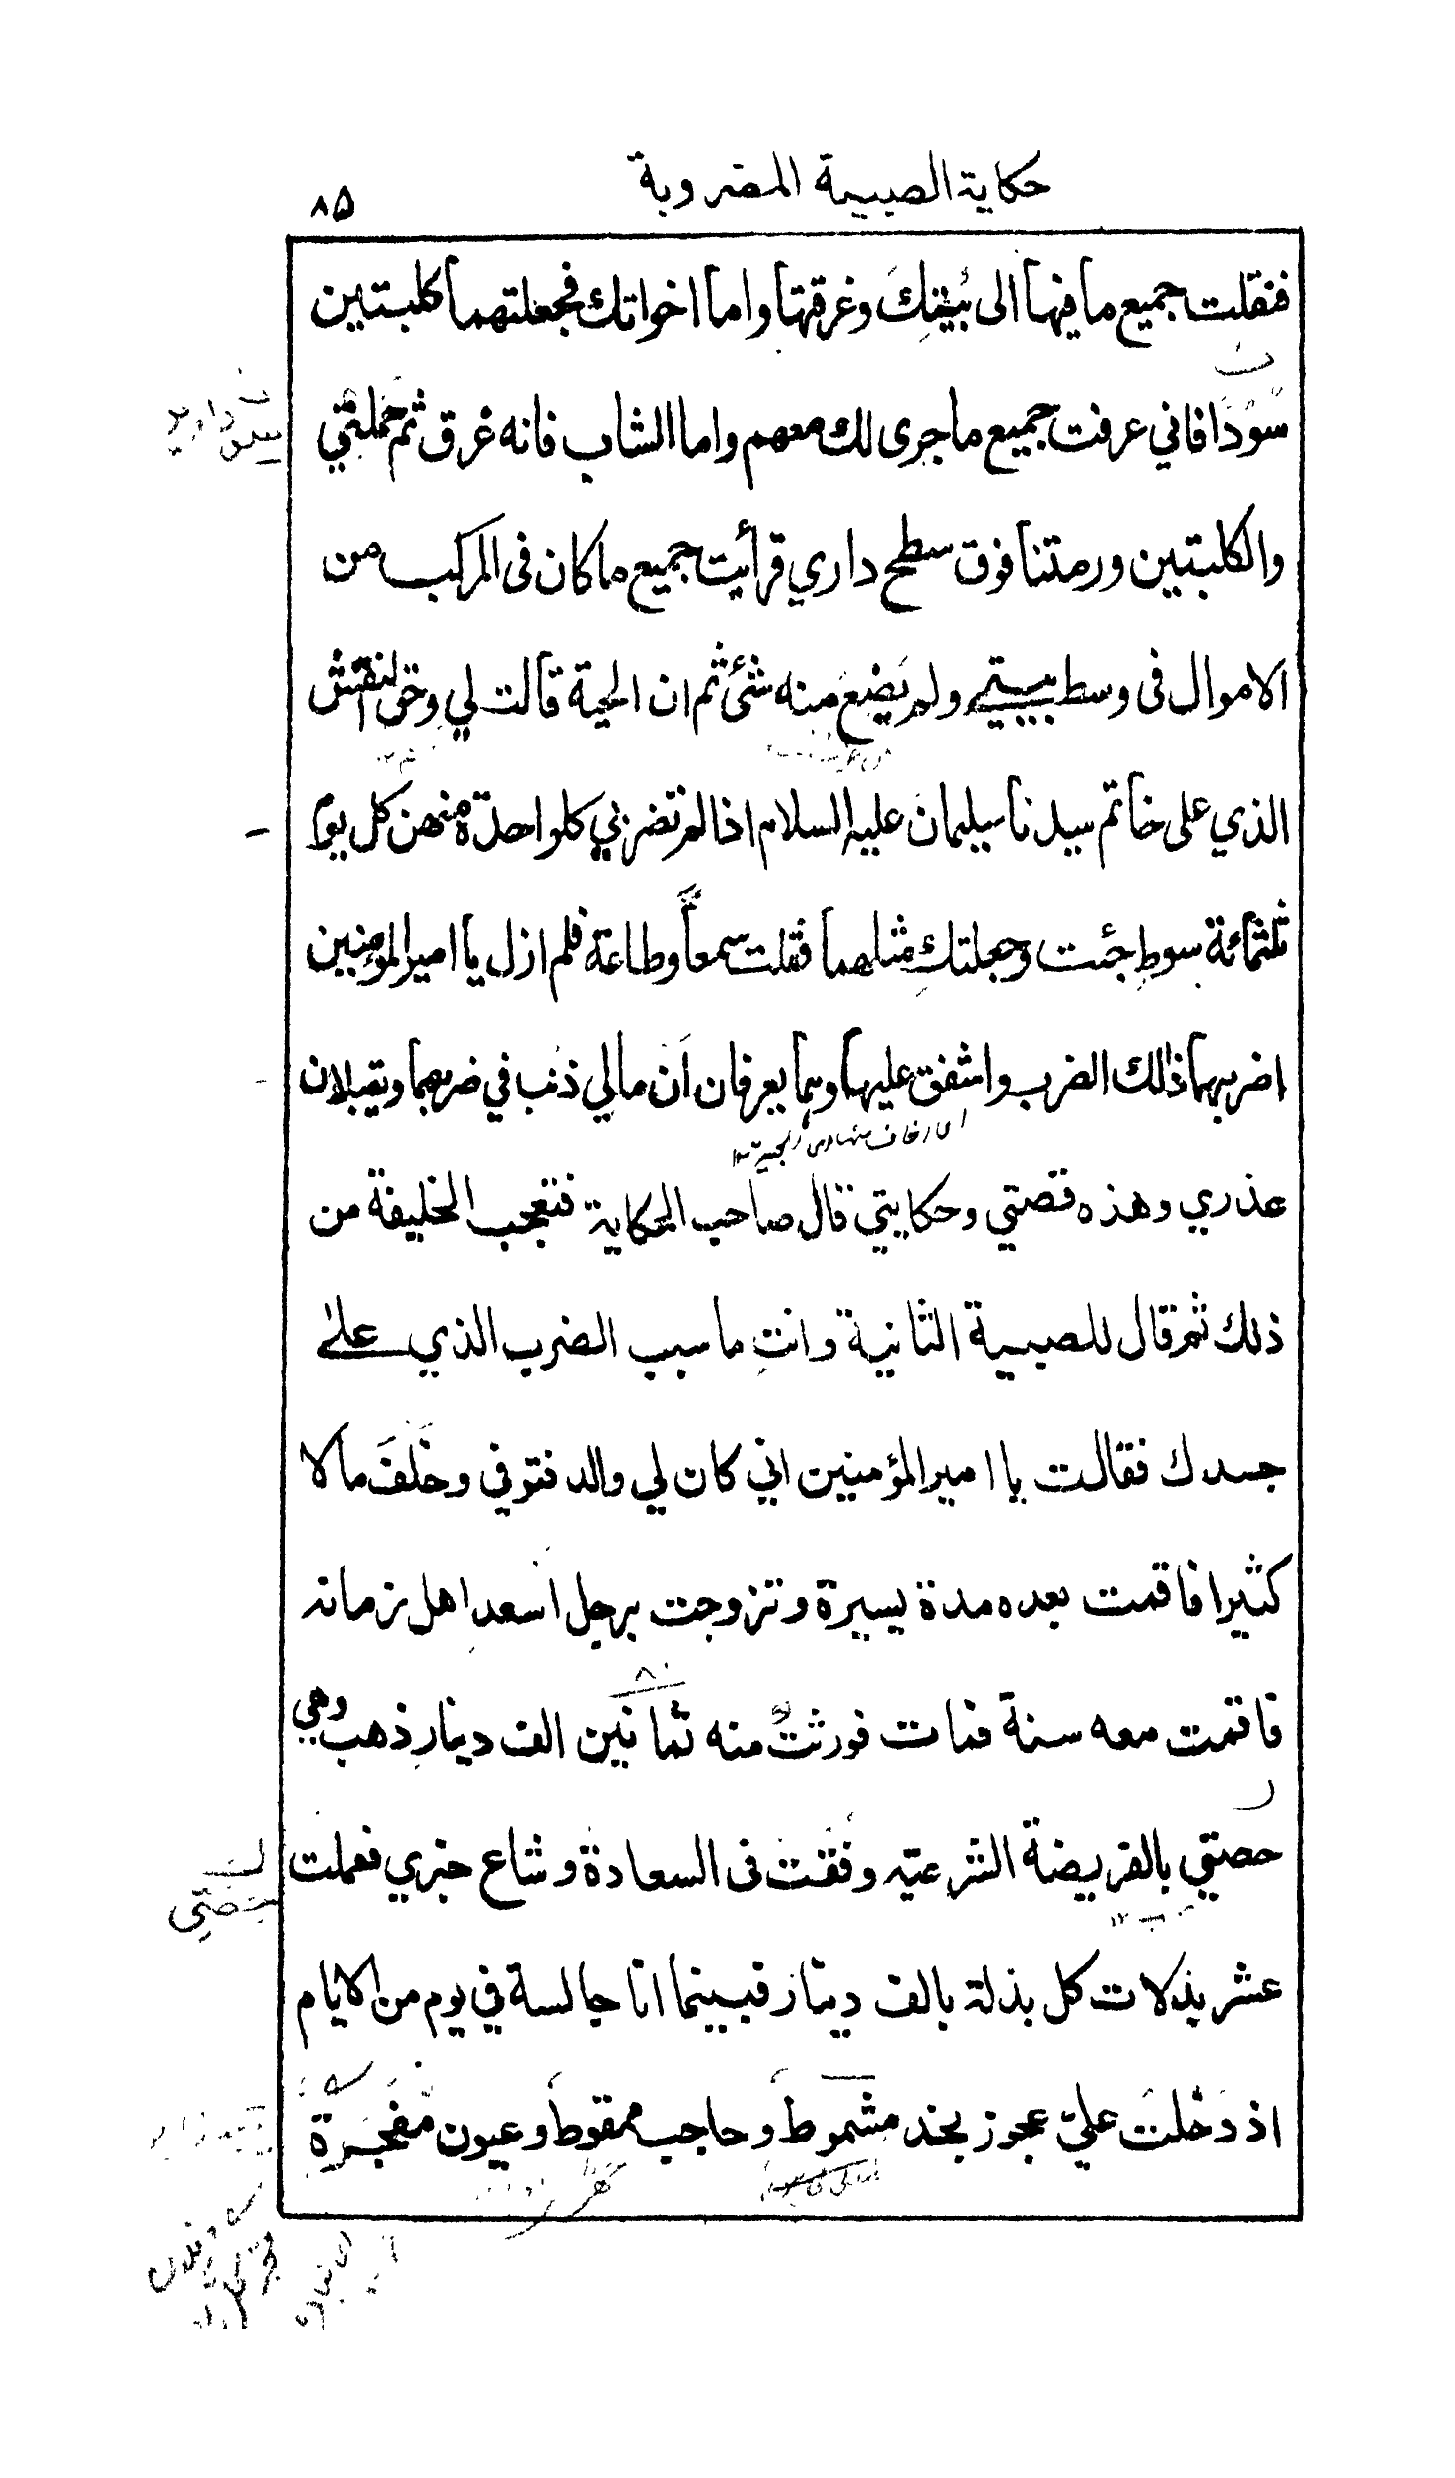 حكاية الصبية المضروبة
٨٥
فنقلت جميع ما فيها الى بُيتِكَ وغرقتها واما اخواتك فجعلتهما كلبتين
سُوُدًا فاني عرفت جميع ما جرى لك معهم واما الشاب فانه غرق ثم حملتني
والكلبتين ورمتنا فوق سطح داري قرأيت جميع ما كان فى المركب من
الاموال فى وسط بيتي ولم يَضِعَ منه شئ ثم ان الحية قالت لي وحق النقش
الذي على خاتم سيدنا سيليمان عليه السلام اذا لم تضربي كلواحدة منهن كل يوم
ثلثمائة سوطٍ جئت وجعلتكِ مثلهما فقلت سمعاً وطاعة فلم ازل يا امير المؤمنين
اضربهما ذالك الضرب واشفق عليهما وهما يعرفان اَن مالي ذنب في ضربهما ويقبلان
عذري وهذه قصتي وحكايتي قال صاحب الحكاية فتعجب الخليفة من
ذلك ثم قال للصبية الثانية وانتِ ما سبب الضرب الذي على
جسدك فقالت يا امير المؤمنين اني كان لي والد فتوفي وخلّفَ مالا
كثيرا فاقمت بعده مدة يسيرة وتزوجت برجل اسعد اهل زمانه
فاقمت معه سنة فمات فورثتُ منه ثمانين الف دينارٍ ذهب وهي
٨٠
حصتي بالفريضة الشرعيّه وفقت فى السعادة وشاع خبري فعملت
حصتي
عشر بذلات كل بذلة بالف دينار فبينما انا جالسة في يوم من الايام
اذ دَخلَت عليّ عجوز بخد مشموط وحاجب ممقوط وعيون مُفَجَّرَة